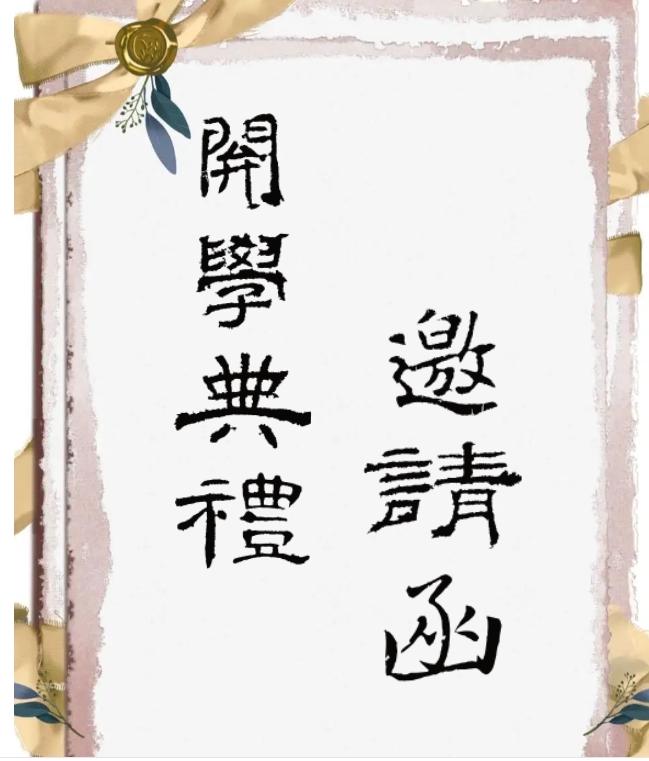 開學典禮
邀請函